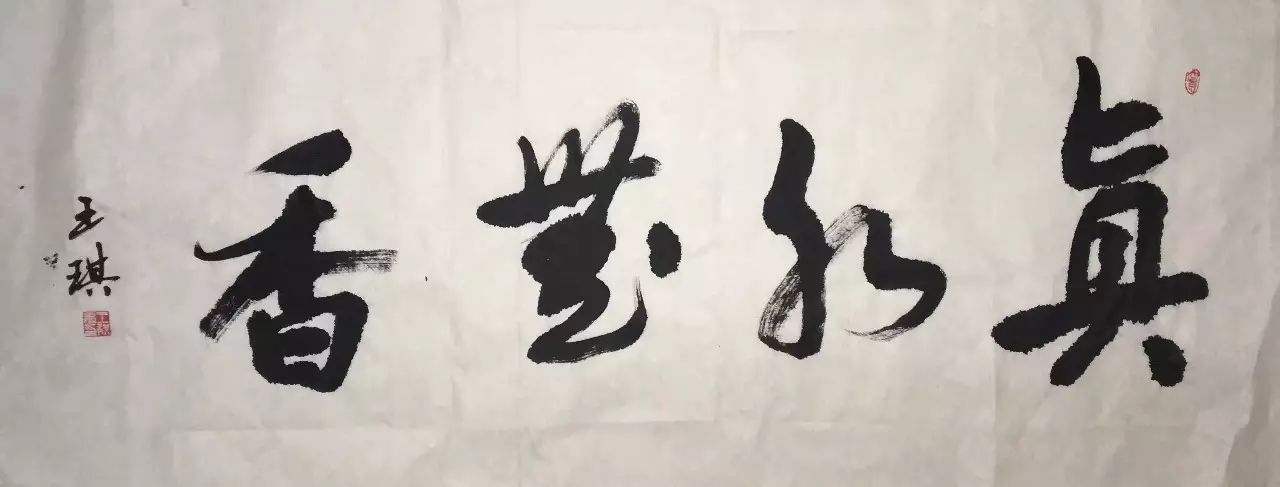 真水無香
王琪